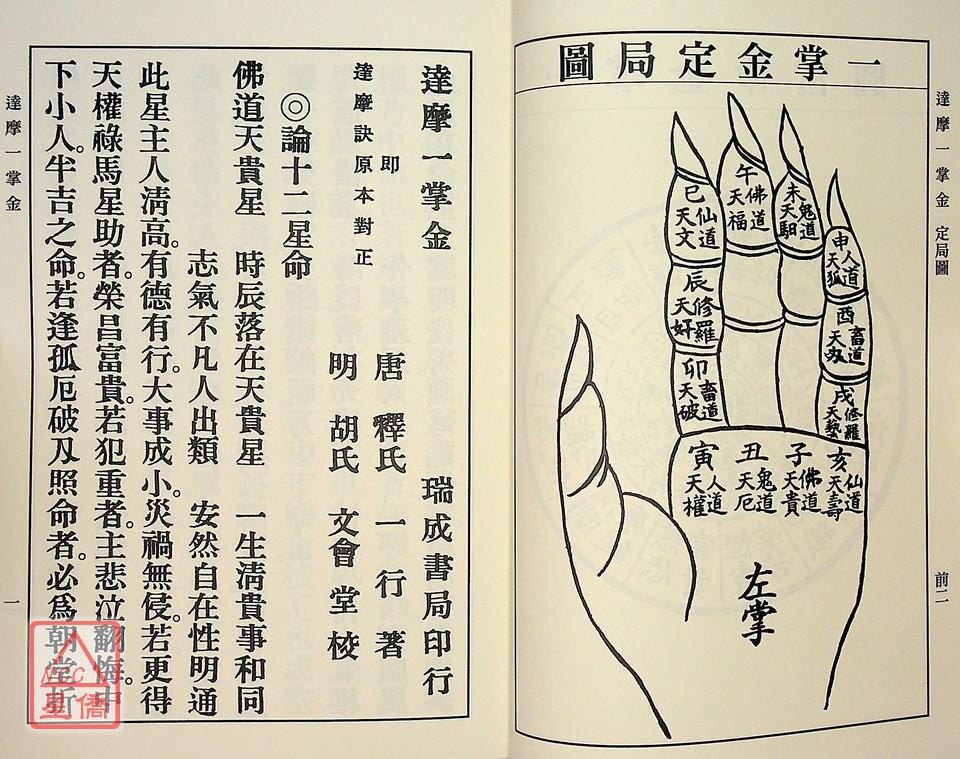 達摩一掌金 定局圖
前二
一掌金定局圖
巳 仙道 天文
午 佛道 天福
未 鬼道 天馹
申 人道 天狐
辰 修羅 天奸
酉 畜道 天刄
卯 畜道 天破
戌 修羅 天藝
寅 人道 天權
丑 鬼道 天厄
子 佛道 天貴
亥 仙道 天壽
左掌
達摩一掌金 瑞成書局印行
即
唐 釋氏 一行 著
達摩訣原本對正
明 胡氏 文會堂 校
◎論十二星命
佛道天貴星 時辰落在天貴星 一生清貴事和同
志氣不凡人出類 安然自在性明通
此星主人清高。有德有行。大事成小。災禍無侵。若更得
天權祿馬星助者。榮昌富貴。若犯重者。主悲泣翻悔。中
下小人。半吉之命。若逢孤厄破刄及照命者。必爲朝堂折
達摩一掌金
一
NCC
星僑